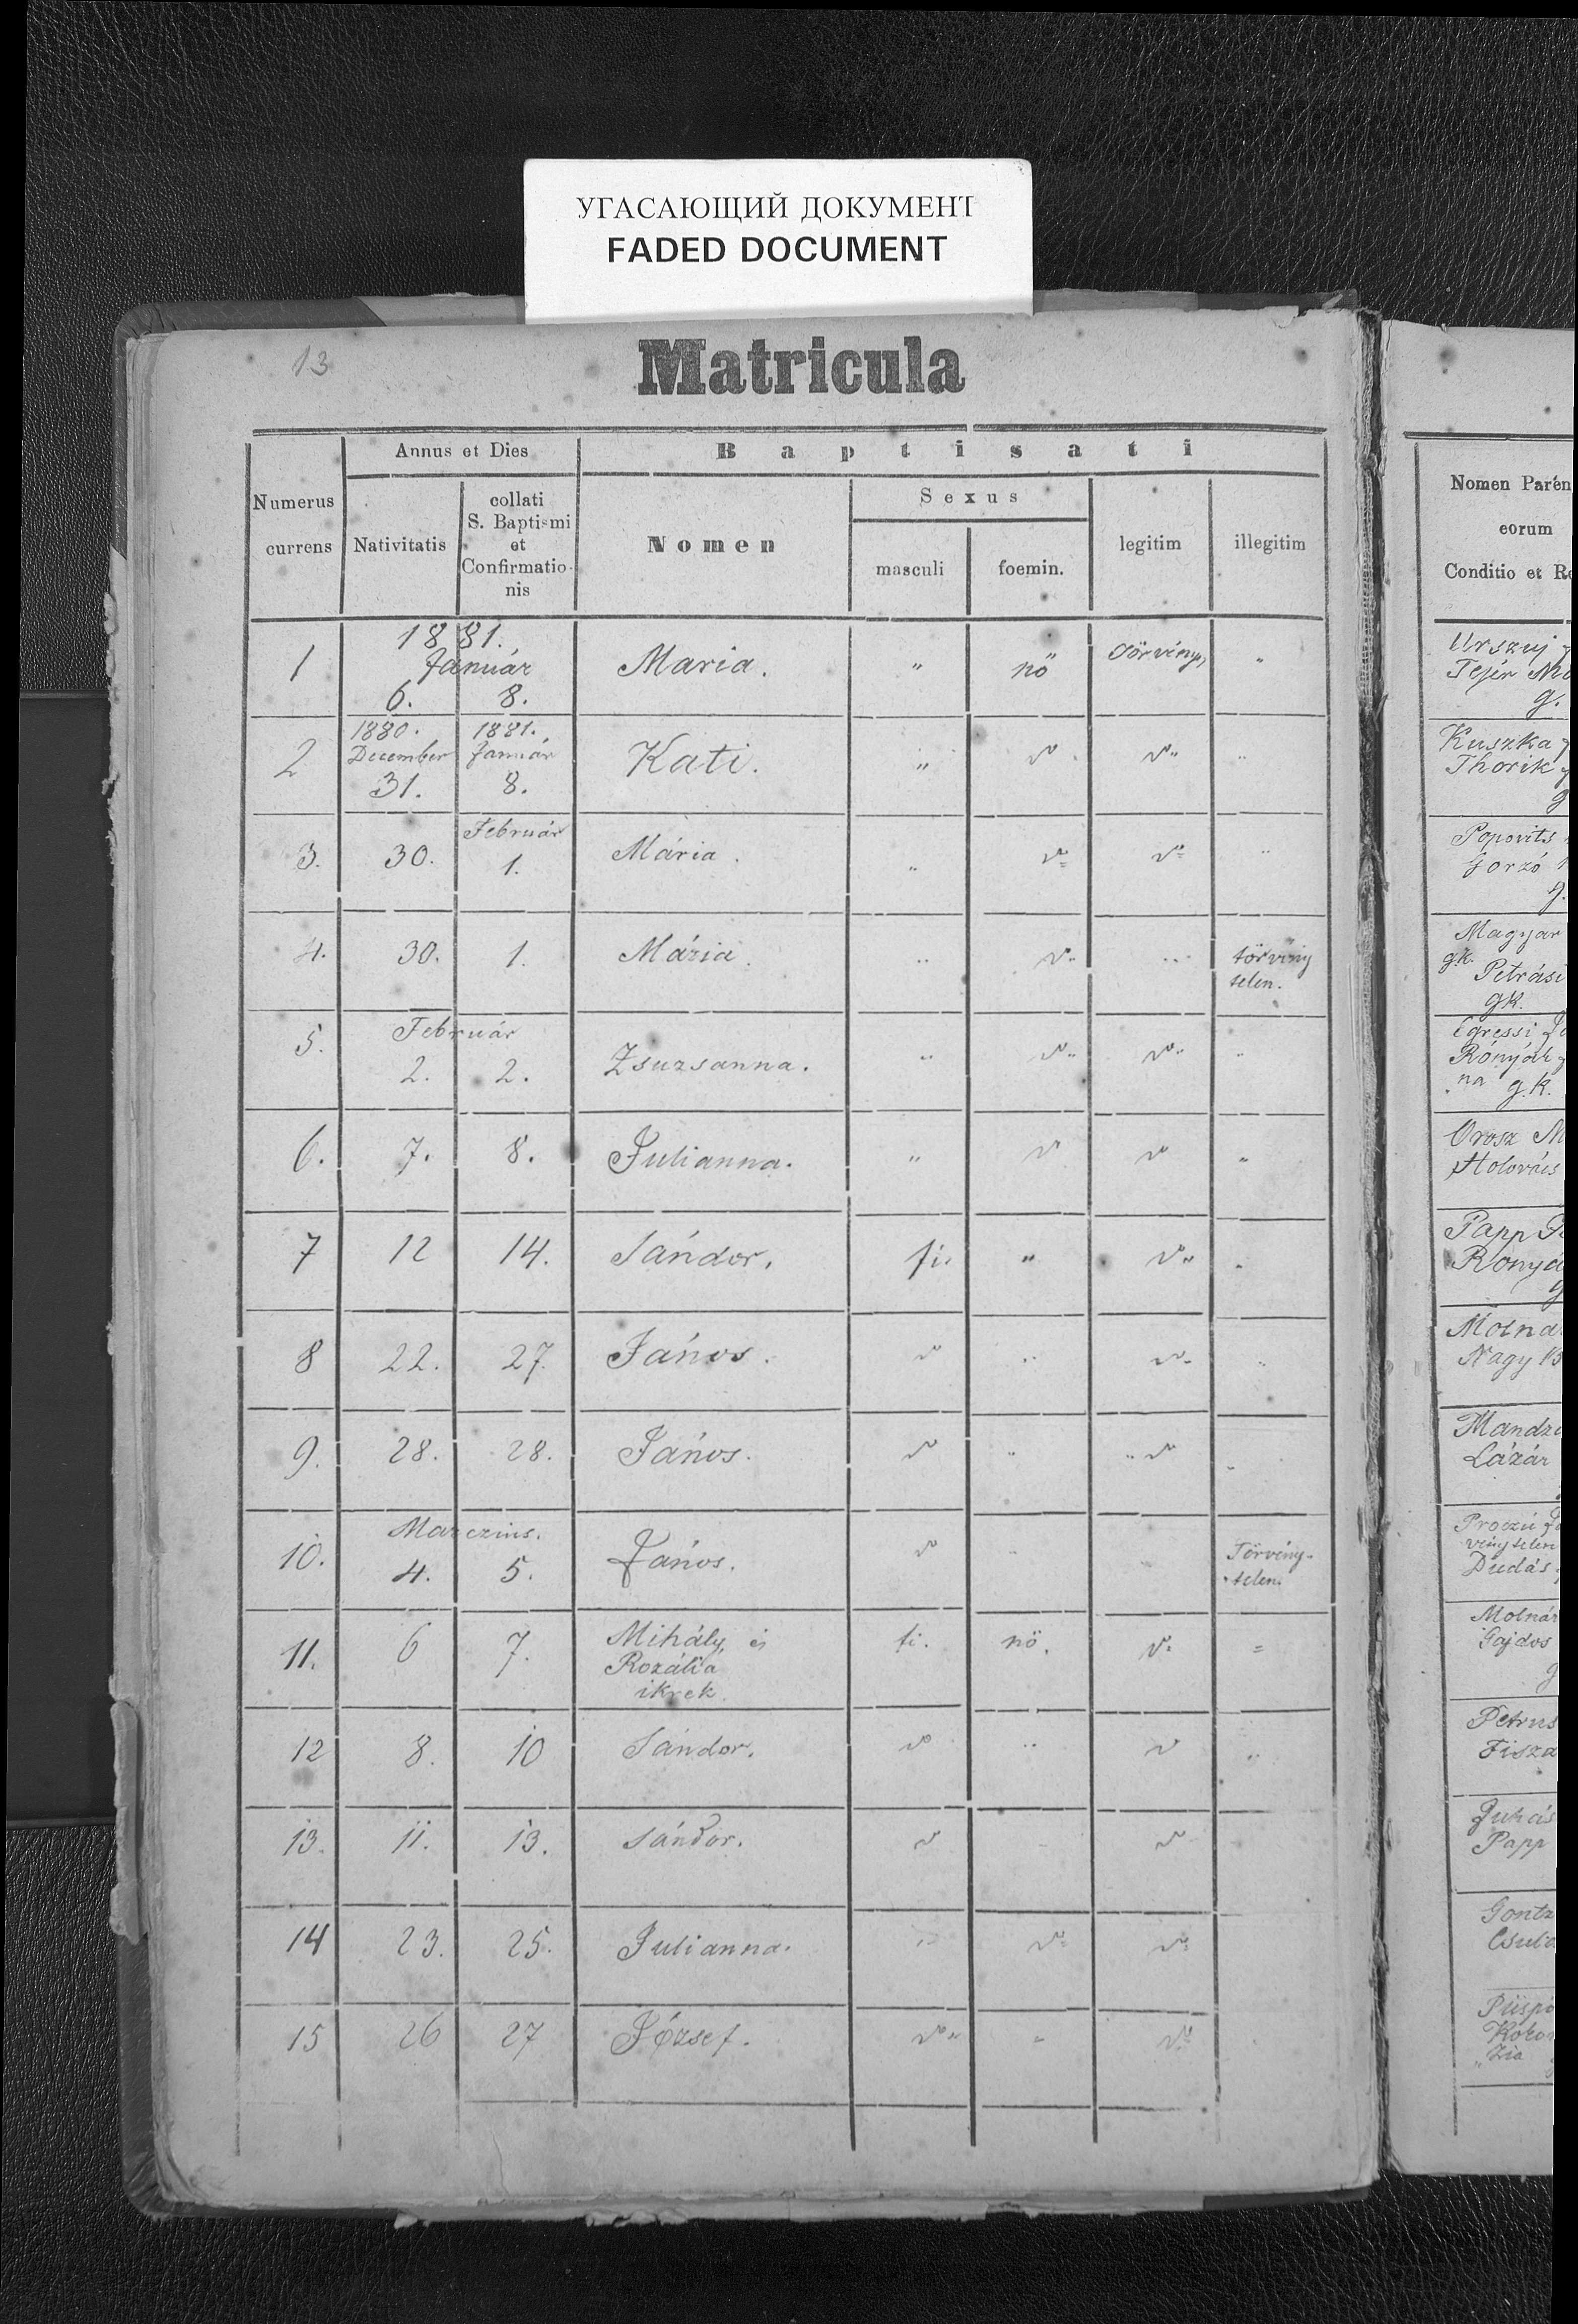 УГАСАЮЩИЙ ДОКУМЕНТ
FADED DOCUMENT
13
Matricula
Numerus currens
Annus et Dies
Nativitatis
collati
S. Baptismi
et
Confirmatio-
nis
Baptisati
Nomen
Sexus
masculi
foemin.
legitim
illegitim
Nomen Paren
eorum
Conditio et Re
1881.
Január
1 6. 8. Maria. " nő törvény "
1880. 1881.
December Január
2 31. 8. Kati. "
Február
3. 30. 1. Mária. "
4. 30. 1. Mária. " törvény
telen.
Február
5. 2. 2. Zsuzsanna. "
6. 7. 8. Julianna. " "
7 12 14. Sándor. fi. "
8 22. 27. János. "
9. 28. 28. János. "
Marczius.
10. 4. 5. János. Törvény-
telen.
11. 6 7. Mihály és fi. nő. =
Rozália
ikrek.
12 8. 10 Sándor. "
13. 11. 13. Sándor.
14 23. 25. Julianna.
15 26 27 József.
Urszuj
Fejér
g.
Kuszka
Thorik
g
Popovits
Gorzó
g.
Magyar
g.k.
Petrási
gk.
Egressi
Rónyák
na g.k.
Orosz M
Holovács
Papp
Ronyá
g
Molná
Nagy B
Lázár
vénytelen
Dudás
Molnár
Gajdos
g
Petrus
Tisza
Juhás
Papp
Gontz
Csulá
Püspö
Kokov
zia